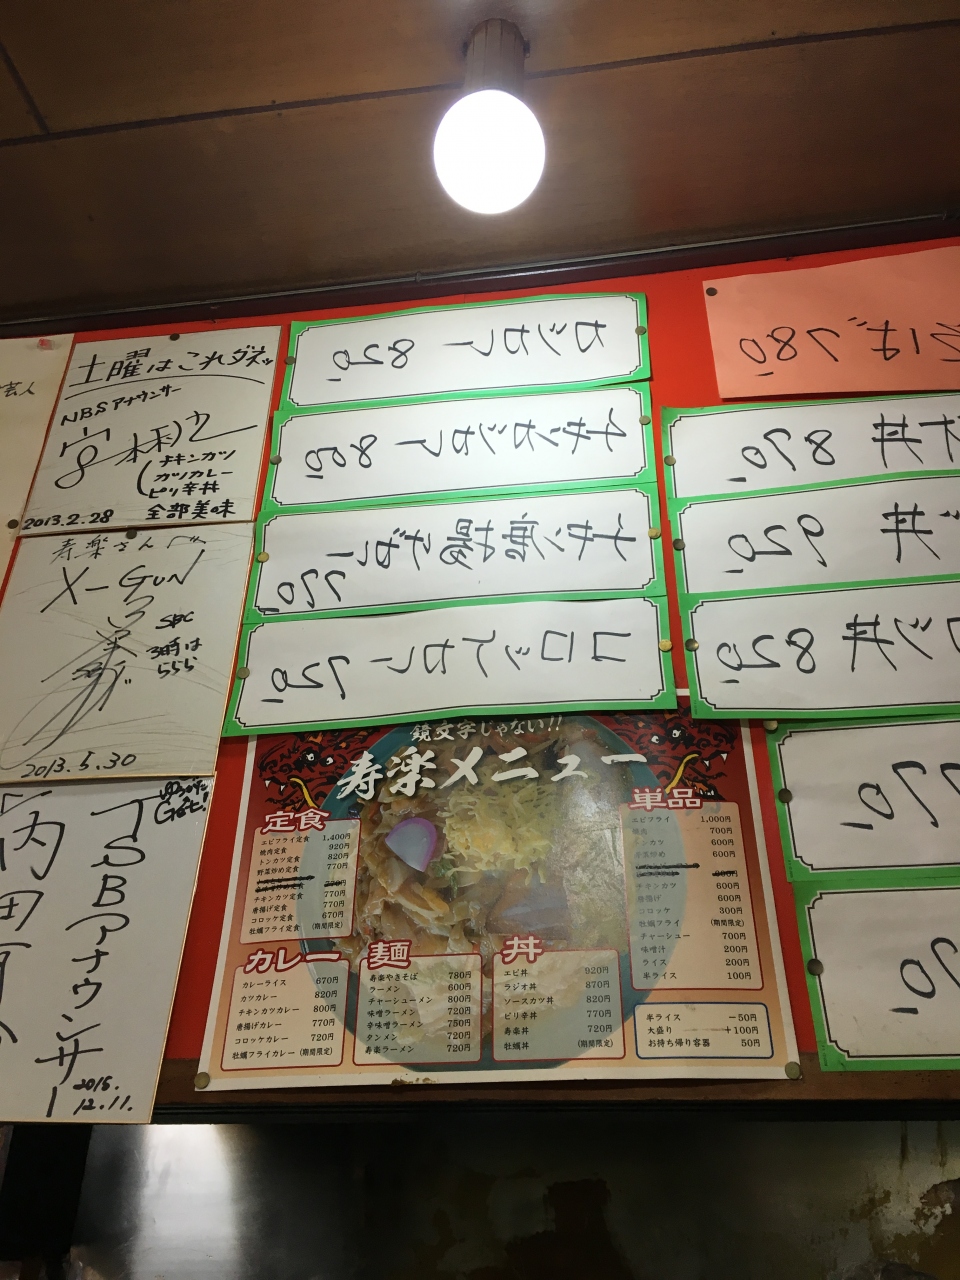 芸人
土曜はこれダネッ
NBSアナウンサー
チキンカツ
カツカレー
ピリ辛丼
全部美味
2013.2.28
寿楽さんへ
X-GUN
SBC
3時は
ららら
2013.5.30
ゆうがたGet!
TSBアナウンサー
内田
2015.
12.11.
カツカレー 820
チキンカツカレー 800
チキン唐揚げカレー
770
コロッケカレー 720
そば 780
丼 870
丼 920
カツ丼 820
770
鏡文字じゃない!!
寿楽メニュー
定食
エビフライ定食 1,400円
焼肉定食 920円
トンカツ定食 820円
野菜炒め定食 770円
チキンカツ定食 770円
唐揚げ定食 770円
コロッケ定食 670円
牡蠣フライ定食 (期間限定)
単品
エビフライ 1,000円
焼肉 700円
トンカツ 600円
野菜炒め 600円
チキンカツ 600円
唐揚げ 600円
コロッケ 300円
牡蠣フライ (期間限定)
チャーシュー 700円
味噌汁 200円
ライス 200円
半ライス 100円
カレー
カレーライス 670円
カツカレー 820円
チキンカツカレー 800円
唐揚げカレー 770円
コロッケカレー 720円
牡蠣フライカレー (期間限定)
麺
寿楽やきそば 780円
ラーメン 600円
チャーシューメン 800円
味噌ラーメン 720円
辛味噌ラーメン 750円
タンメン 720円
寿楽ラーメン 720円
丼
エビ丼 920円
ラジオ丼 870円
ソースカツ丼 820円
ピリ辛丼 770円
寿楽丼 720円
牡蠣丼 (期間限定)
半ライス -50円
大盛り +100円
お持ち帰り容器 50円